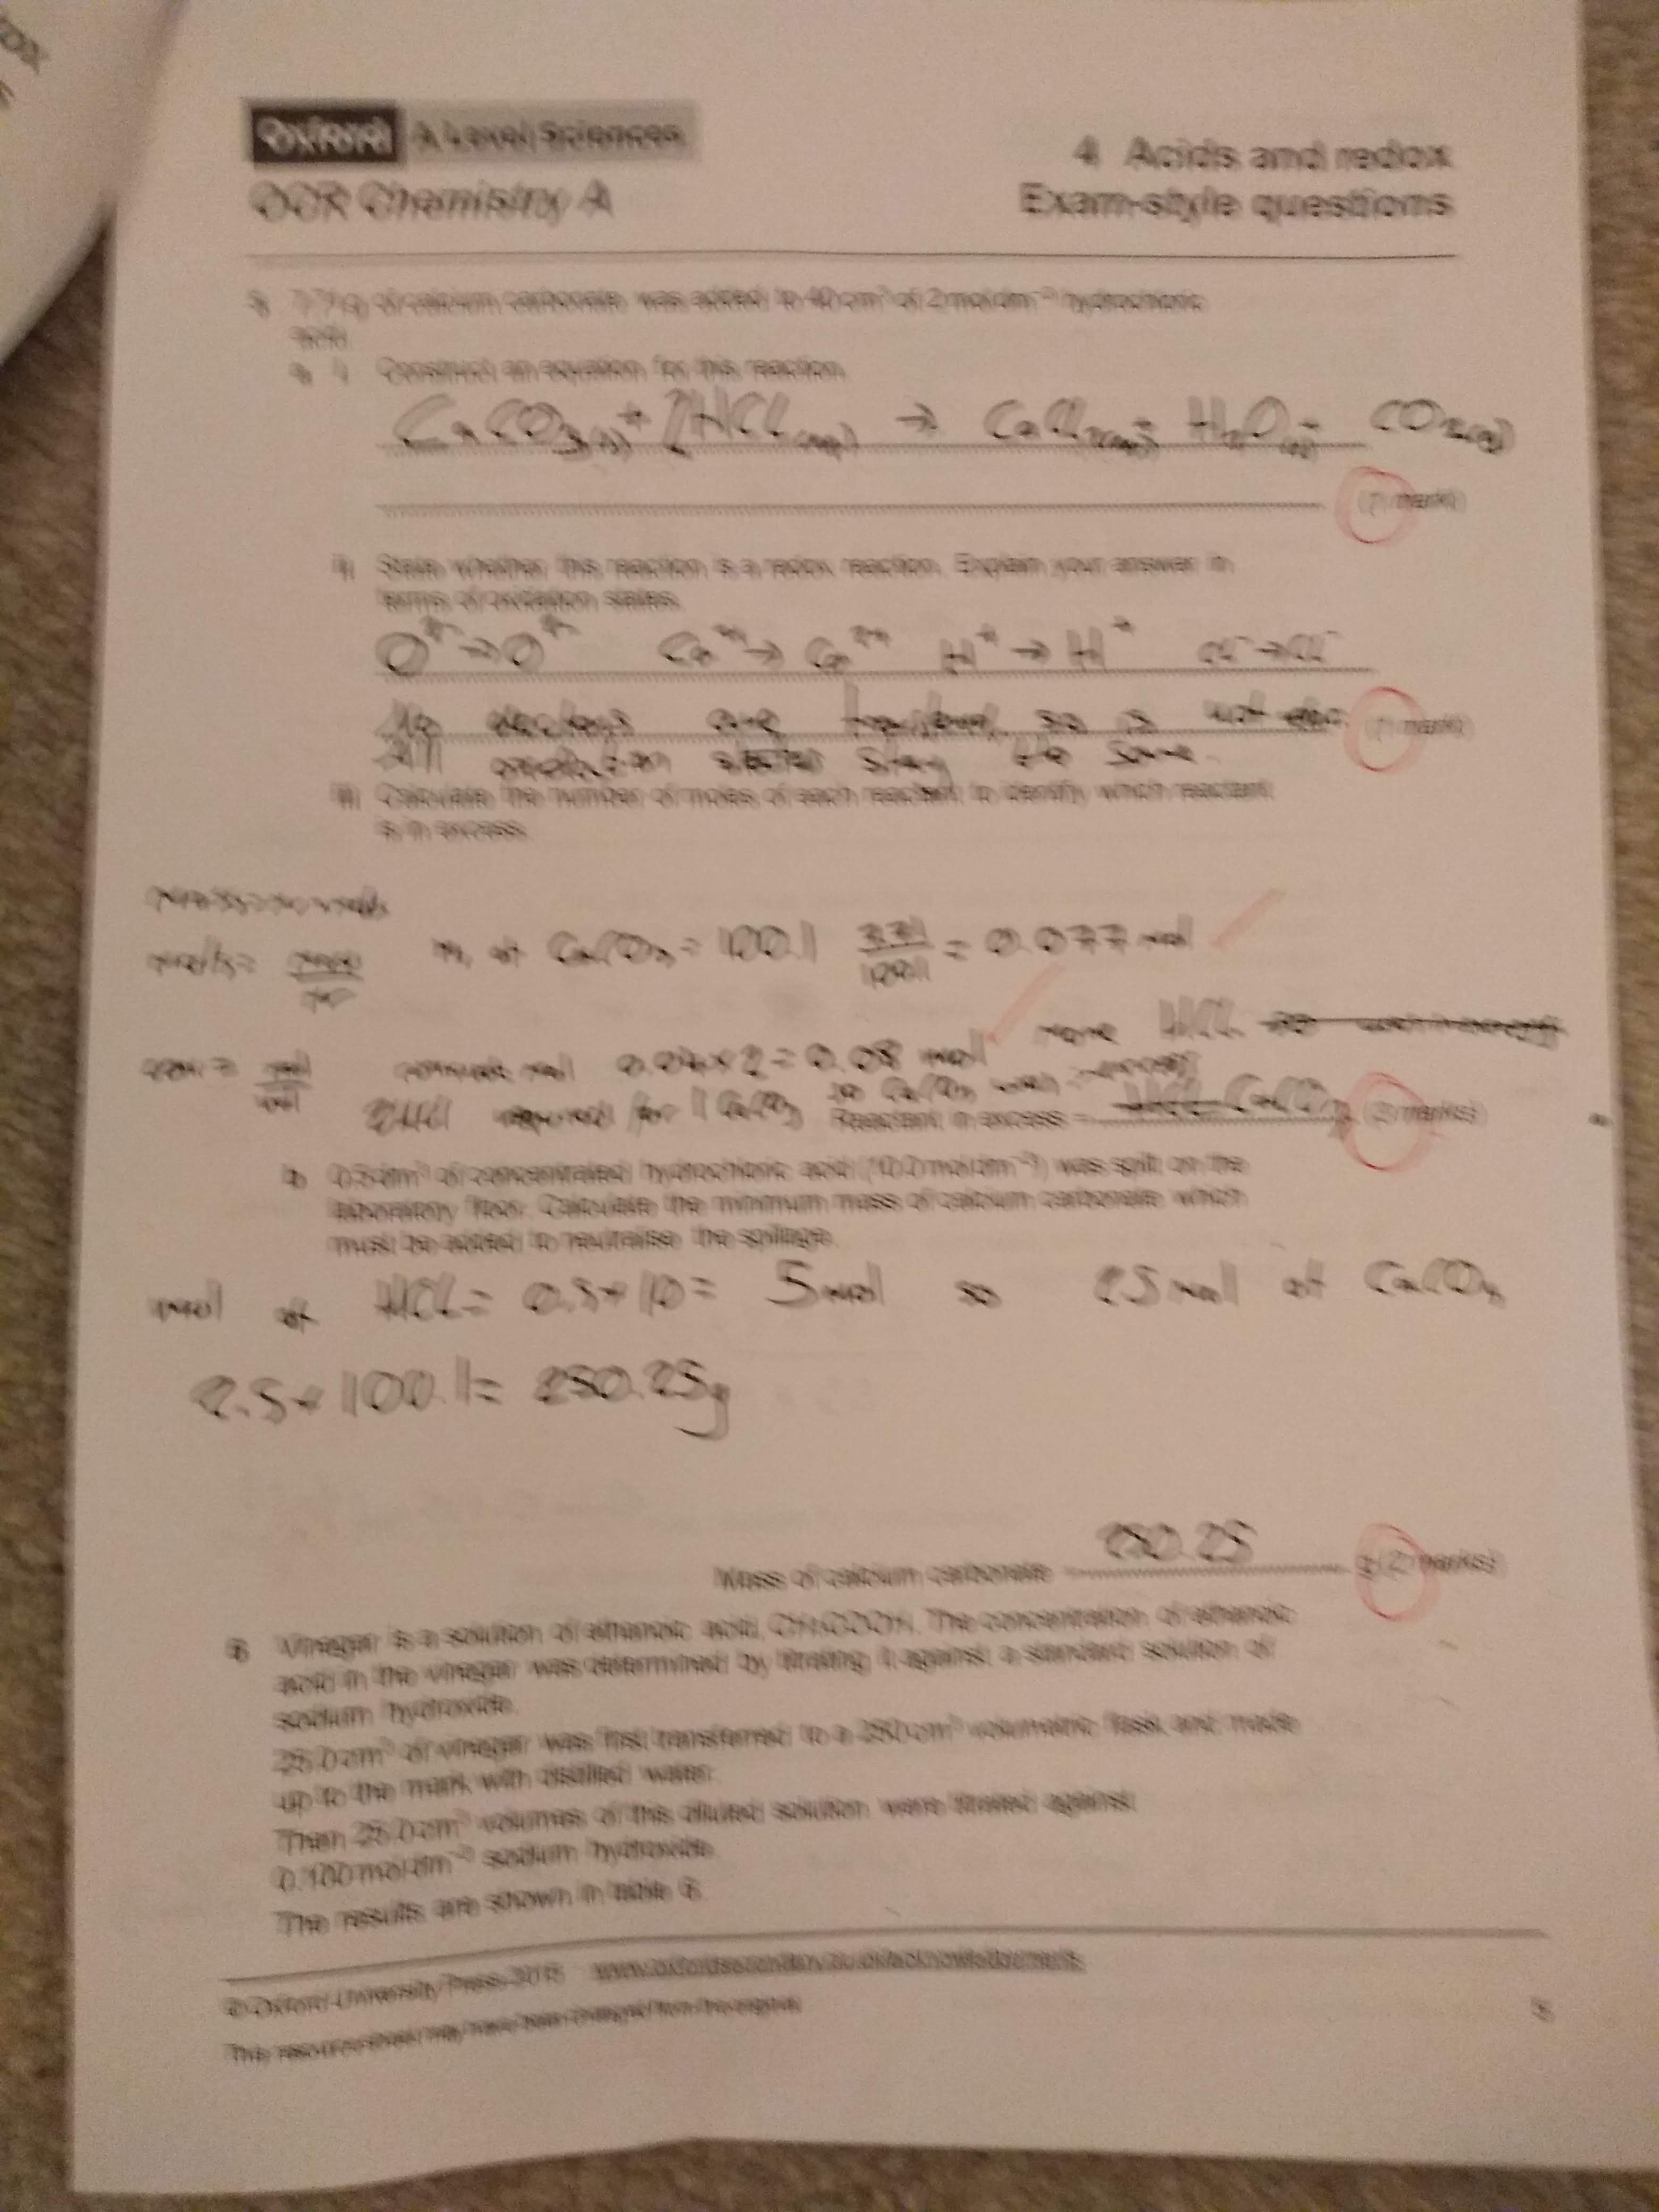 Oxford A Level Sciences
OCR Chemistry A
4 Acids and redox
Exam-style questions
5 7.71g of calcium carbonate was added to 40 cm³ of 2 mol dm⁻³ hydrochloric
acid.
a i Construct an equation for this reaction.
CaCO₃(s) + 2HCl(aq) → CaCl₂(aq) + H₂O(l) + CO₂(g)
(1 mark)
ii State whether this reaction is a redox reaction. Explain your answer in
terms of oxidation states.
O²⁻ → O²⁻ Ca²⁺ → Ca²⁺ H⁺ → H⁺ Cl⁻ → Cl⁻
No electrons are transferred so is not
(1 mark)
All oxidation states stay the same.
iii Calculate the number of moles of each reactant to identify which reactant
is in excess.
of CaCO₃ = 100.1 7.71/100.1 = 0.077 mol
0.04×2 = 0.08 mol more HCl
2HCl required for 1 CaCO₃ so CaCO₃ was in excess
Reactant in excess = CaCO₃ (3 marks)
b 0.5 dm³ of concentrated hydrochloric acid (10.0 mol dm⁻³) was spilt on the
laboratory floor. Calculate the minimum mass of calcium carbonate which
must be added to neutralise the spillage.
mol of HCl = 0.5 × 10 = 5 mol so 2.5 mol of CaCO₃
2.5 × 100.1 = 250.25g
Mass of calcium carbonate = 250.25 g (2 marks)
6 Vinegar is a solution of ethanoic acid, CH₃COOH. The concentration of ethanoic
acid in the vinegar was determined by titrating it against a standard solution of
sodium hydroxide.
25.0 cm³ of vinegar was first transferred to a 250 cm³ volumetric flask and made
up to the mark with distilled water.
Then 25.0 cm³ volumes of this diluted solution were titrated against
0.100 mol dm⁻³ sodium hydroxide.
The results are shown in table 6.
© Oxford University Press 2015 www.oxfordsecondary.co.uk/acknowledgements
This resource sheet may have been changed from the original.